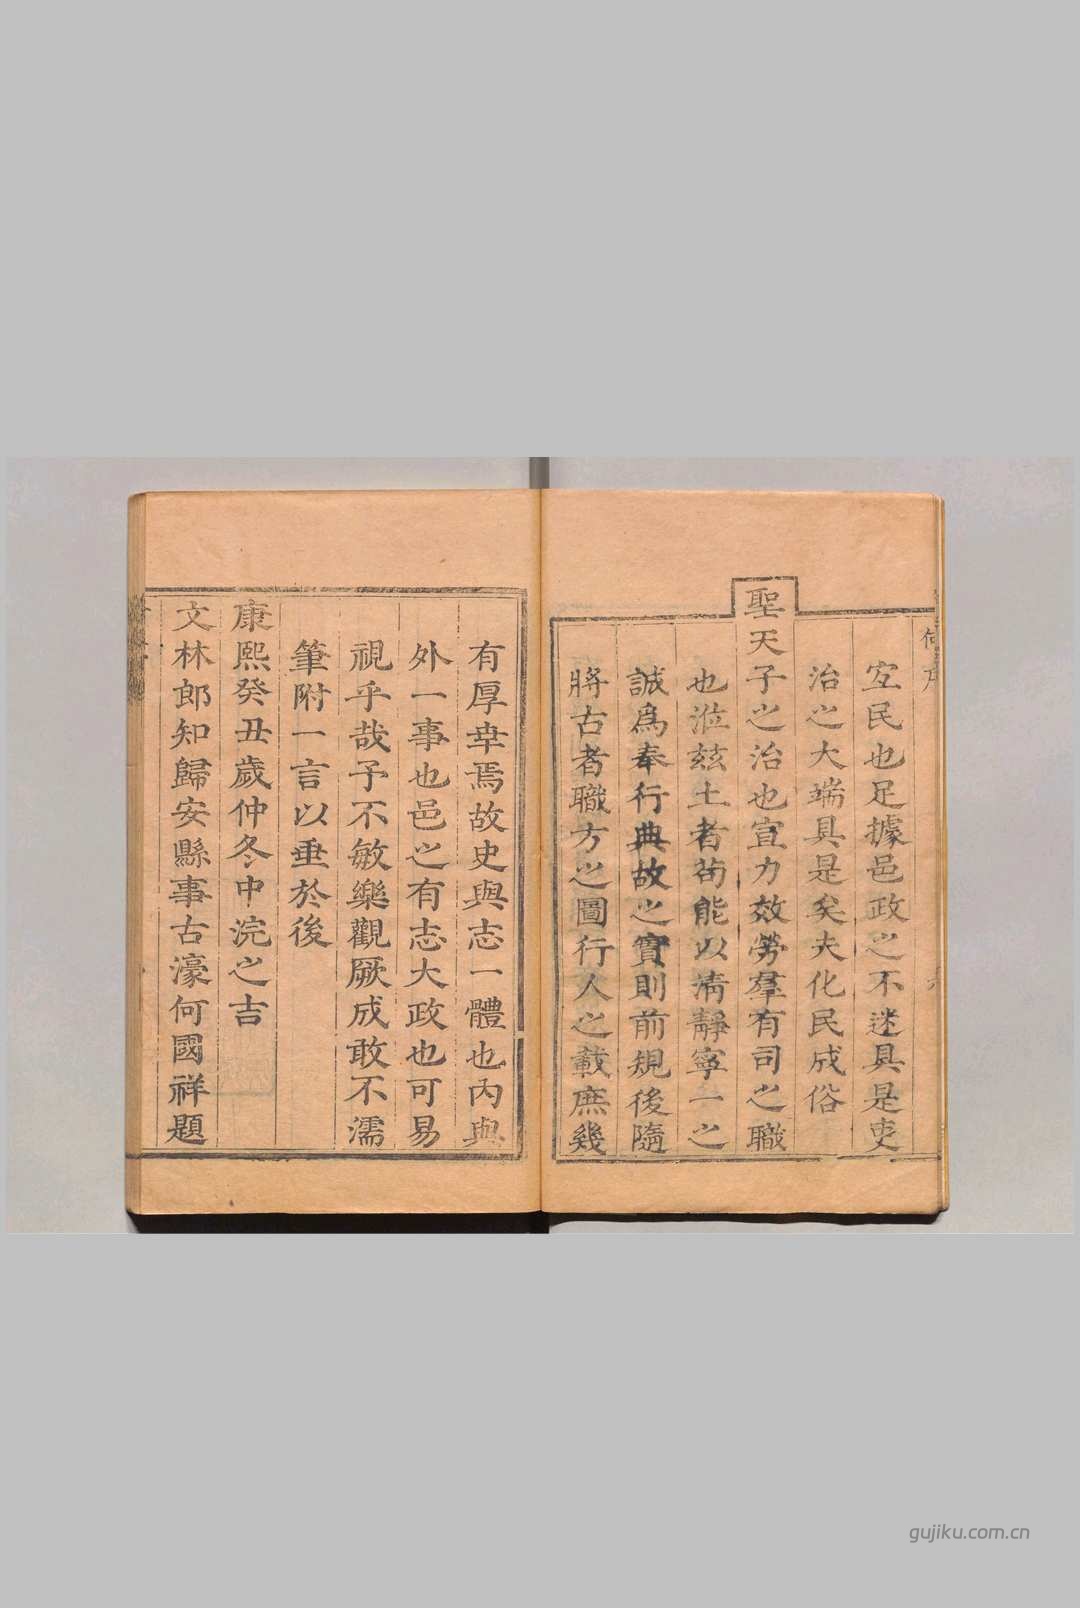 宜民也足據邑政之不迷具是吏
治之大端具是矣夫化民成俗
聖天子之治也宣力效勞羣有司之職
也涖兹土者苟能以清靜寧一之
誠爲奉行典故之實則前規後隨
將古者職方之圖行人之載庶幾
有厚幸焉故史與志一體也內與
外一事也邑之有志大政也可易
視乎哉予不敏樂觀厥成敢不濡
筆附一言以垂於後
康熙癸丑歲仲冬中浣之吉
文林郎知歸安縣事古濠何國祥題
gujiku.com.cn